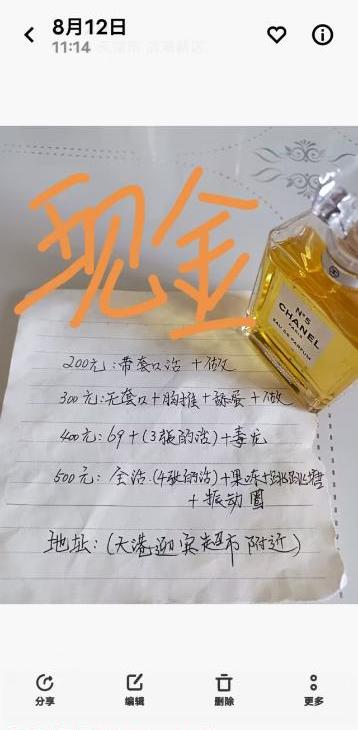 8月12日
11:14
现金
N°5
CHANEL
PARIS
EAU DE PARFUM
200元:带套口活 +做
300元:无套口+胸推+舔蛋+做
400元:69+(3张的活)+毒龙
500元: 全活(4张的活)+果冻+跳跳糖
+振动圈
地址:(大港迎宾超市附近)
分享
编辑
删除
更多